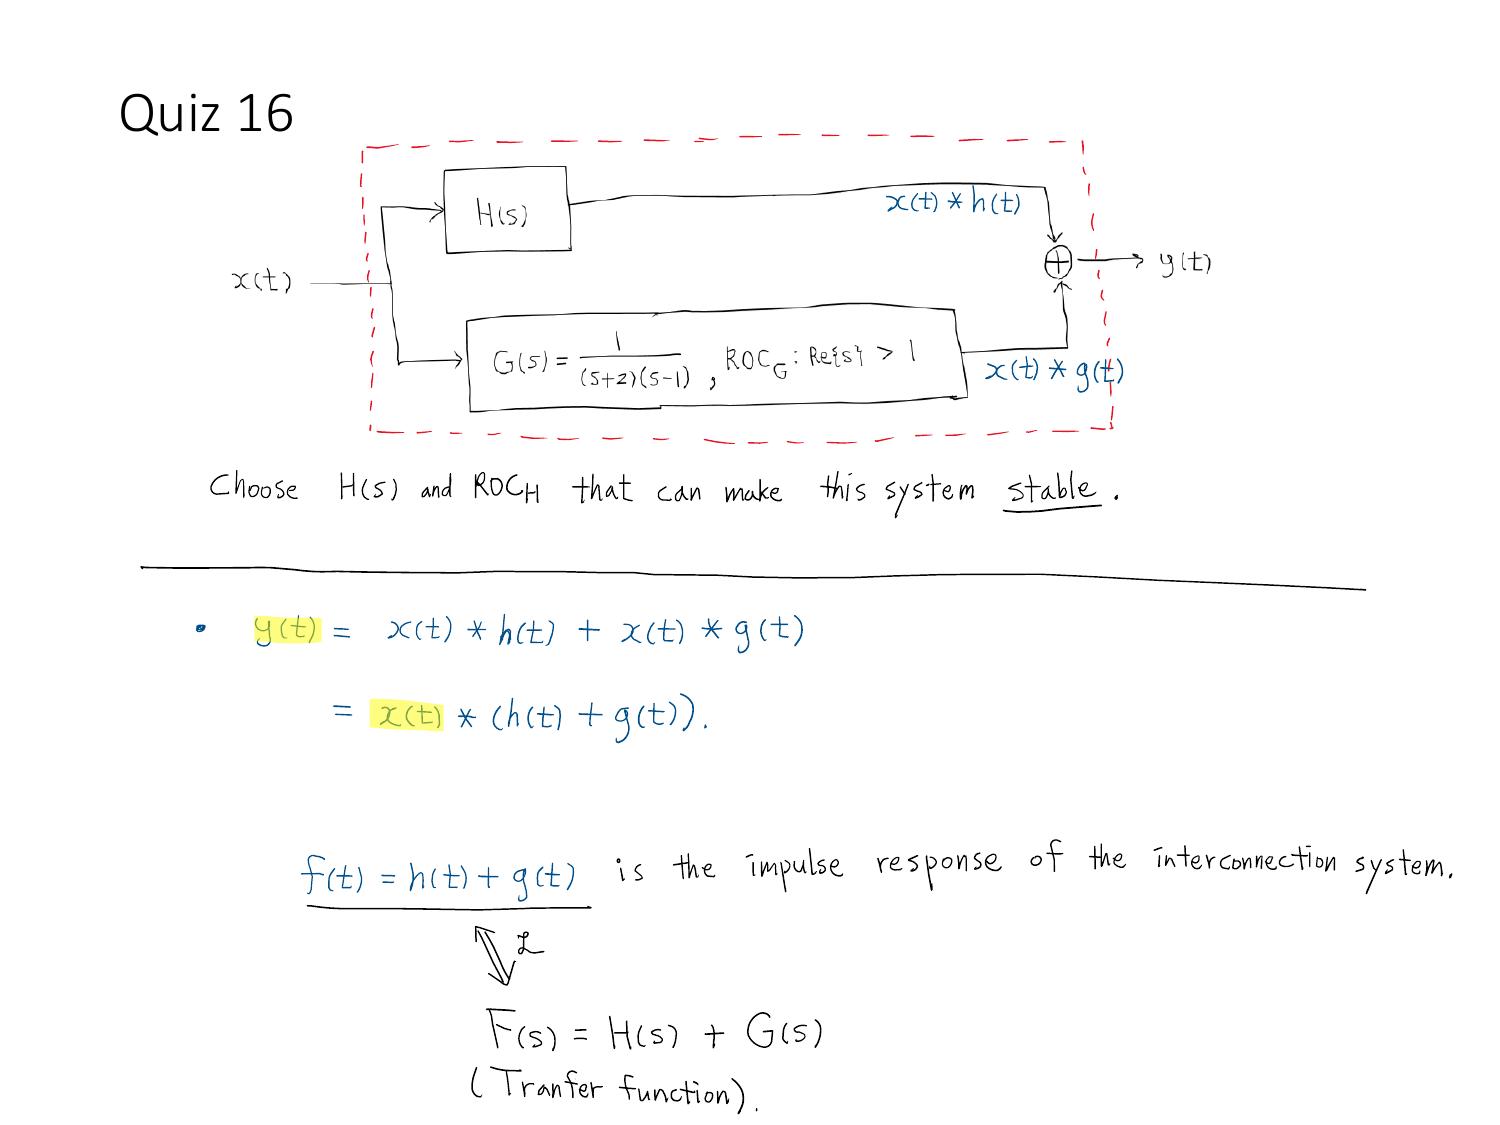 Quiz 16
H(s)
x(t) * h(t)
x(t)
y(t)
G(s) = 1/((s+2)(s-1)), ROC_G : Re{s} > 1
x(t) * g(t)
Choose H(s) and ROC_H that can make this system stable.
• y(t) = x(t) * h(t) + x(t) * g(t)
= x(t) * (h(t) + g(t)).
f(t) = h(t) + g(t) is the impulse response of the interconnection system.
ℒ
F(s) = H(s) + G(s)
(Tranfer function).